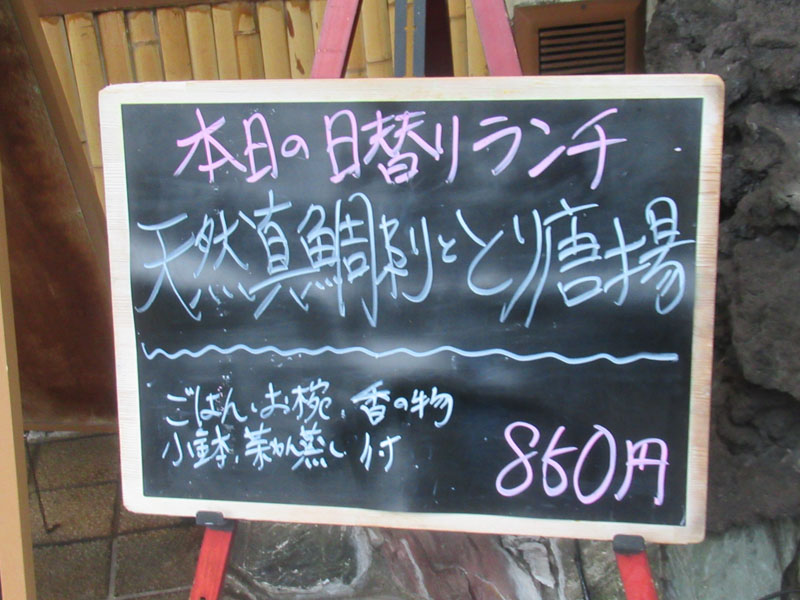 本日の日替りランチ
天然真鯛刺ととり唐揚
ごはん、お椀、香の物
小鉢、茶わん蒸し付
860円